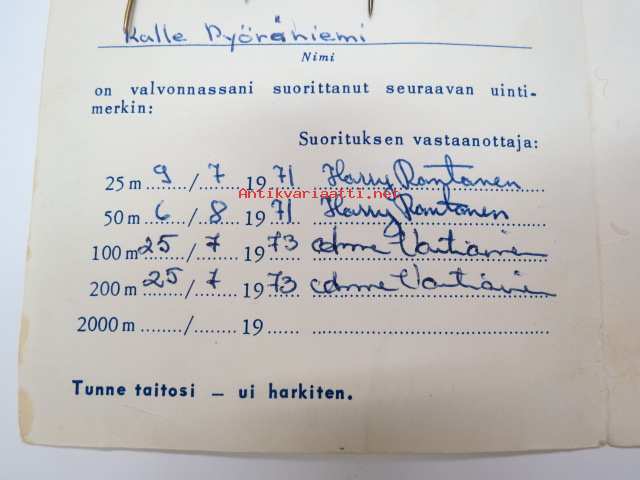 Kalle Pyöräniemi
Nimi
on valvonnassani suorittanut seuraavan uinti-
merkin:
Suorituksen vastaanottaja:
25 m 9 / 7 1971 Harry Rantanen
Antikvariaatti.net
50 m 6 / 8 1971 Harry Rantanen
100 m 25 / 7 1973 Vartiainen
200 m 25 / 7 1973 Vartiainen
2000 m ........ / ........ 19 ......
Tunne taitosi — ui harkiten.